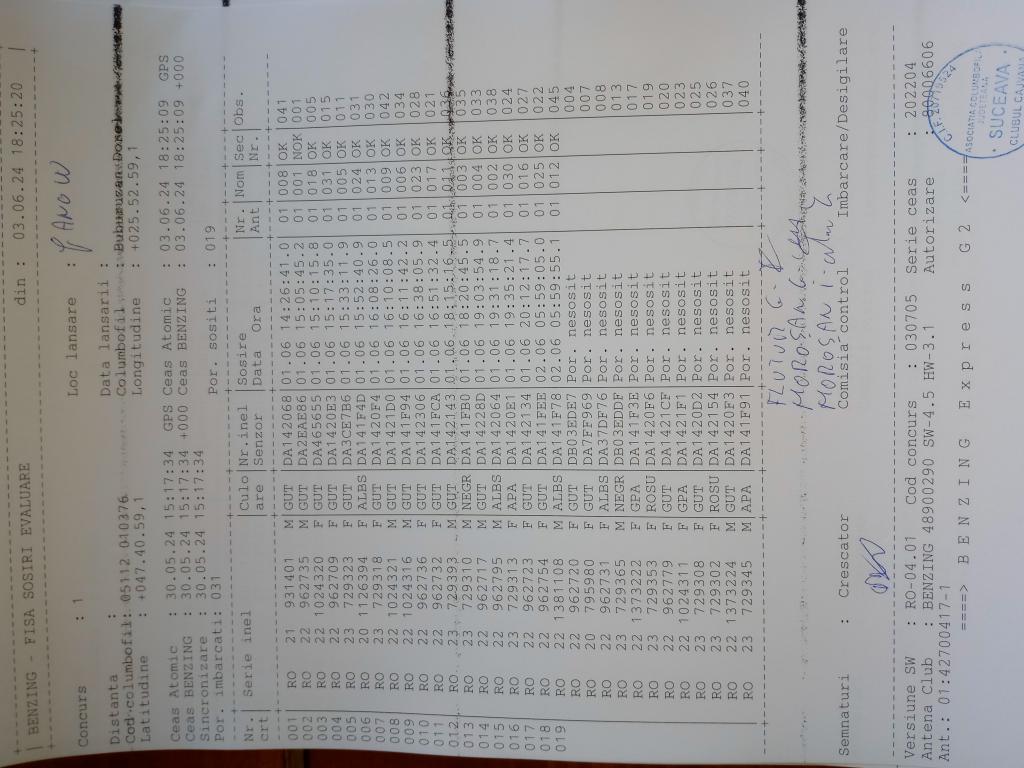 BENZING - FISA SOSIRI EVALUARE din : 03.06.24 18:25:20
Concurs : 1 Loc lansare : JANOW
Data lansarii :
Distanta :
Cod columbofil: 05112 010376 Columbofil : Buburuzan Dorel
Latitudine : +047.40.59,1 Longitudine : +025.52.59,1
Ceas Atomic : 30.05.24 15:17:34 GPS Ceas Atomic : 03.06.24 18:25:09 GPS
Ceas BENZING : 30.05.24 15:17:34 +000 Ceas BENZING : 03.06.24 18:25:09 +000
Sincronizare : 30.05.24 15:17:34
Por. imbarcati: 031 Por. sositi : 019
Nr. Serie inel Culo Nr.inel Sosire Nr. Nom Sec Obs.
crt are Senzor Data Ora Ant Nr.
001 RO 21 931401 M GUT DA142068 01.06 14:26:41.0 01 008 OK 041
002 RO 22 962735 M GUT DA2EAE86 01.06 15:05:45.2 01 001 NOK 001
003 RO 22 1024320 F GUT DA465655 01.06 15:10:15.8 01 018 OK 005
004 RO 22 962709 F GUT DA1420E3 01.06 15:17:35.0 01 031 OK 015
005 RO 23 729323 F GUT DA3CE7B6 01.06 15:33:11.9 01 005 OK 011
006 RO 20 1126394 F ALBS DA141F4D 01.06 15:52:40.9 01 024 OK 031
007 RO 23 729318 F GUT DA1420F4 01.06 16:08:26.0 01 013 OK 030
008 RO 22 1024321 M GUT DA1421D0 01.06 16:10:08.5 01 009 OK 042
009 RO 22 1024316 M GUT DA141F94 01.06 16:11:42.2 01 006 OK 034
010 RO 22 962736 F GUT DA142306 01.06 16:38:05.9 01 023 OK 028
011 RO 22 962732 F GUT DA141FCA 01.06 16:51:32.4 01 017 OK 021
012 RO 23 729393 M GUT DA142143 01.06 18:15:16.5 01 011 OK 036
013 RO 23 729310 M NEGR DA141FB0 01.06 18:20:45.5 01 003 OK 035
014 RO 22 962717 M GUT DA14228D 01.06 19:03:54.9 01 004 OK 033
015 RO 22 962795 M ALBS DA142064 01.06 19:31:18.7 01 002 OK 038
016 RO 23 729313 F APA DA1420E1 01.06 19:35:21.4 01 030 OK 024
017 RO 22 962723 F GUT DA142134 01.06 20:12:17.7 01 016 OK 027
018 RO 22 962754 F GUT DA141FEE 02.06 05:59:05.0 01 025 OK 022
019 RO 22 1381108 M ALBS DA141F78 02.06 05:59:55.1 01 012 OK 045
RO 22 962720 F GUT DB03EDE7 Por. nesosit 004
RO 20 795980 F GUT DA7FF969 Por. nesosit 007
RO 22 962731 F ALBS DA37DF76 Por. nesosit 008
RO 23 729365 M NEGR DB03EDDF Por. nesosit 013
RO 22 1373222 F GPA DA141F3E Por. nesosit 017
RO 23 729353 F ROSU DA1420F6 Por. nesosit 019
RO 22 962779 F GUT DA1421CF Por. nesosit 020
RO 22 1024311 F GPA DA1421F1 Por. nesosit 023
RO 23 729308 F GUT DA1420D2 Por. nesosit 025
RO 23 729302 F ROSU DA142154 Por. nesosit 026
RO 22 1373224 M GUT DA1420F3 Por. nesosit 037
RO 23 729345 M APA DA141F91 Por. nesosit 040
MOROSAN
MOROSAN
Semnaturi : Crescator Comisia control Imbarcare/Desigilare
Versiune SW : RO-04.01 Cod concurs : 030705 Serie ceas : 202204
Antena Club : BENZING 48900290 SW-4.5 HW-3.1 Autorizare : 200006606
Ant.: 01:42700417-1
====> B E N Z I N G E x p r e s s G 2 <====
ASOCIATIA COLUMBOFILA
JUDETEANA
SUCEAVA
CLUBUL CAJVANA